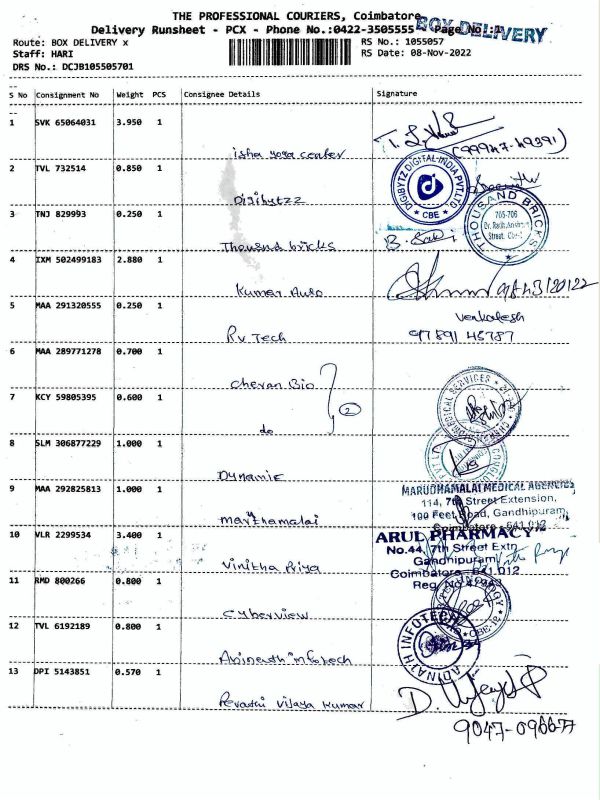 THE PROFESSIONAL COURIERS, Coimbatore
Delivery Runsheet - PCX - Phone No.:0422-3505555 - Page No.:1
BOX DELIVERY
Route: BOX DELIVERY x
RS No.: 1055057
Staff: HARI
RS Date: 08-Nov-2022
DRS No.: DCJB105505701
S No Consignment No Weight PCS Consignee Details Signature
1 SVK 65064031 3.950 1
isha yoga center
2 TVL 732514 0.850 1
Digibytzz
DIGIBYTZ DIGITAL INDIA PVT LTD
CBE
3 TNJ 829993 0.250 1
Thousand bricks
THOUSAND BRICKS
705-706
4 IXM 502499183 2.880 1
Kumar Auto
5 MAA 291320555 0.250 1
Rv Tech
Venkatesh
97891 45787
6 MAA 289771278 0.700 1
Cheran Bio
7 KCY 59805395 0.600 1
do
2
8 SLM 306877229 1.000 1
Dynamic
9 MAA 292825813 1.000 1
marthamalai
MARUDHAMALAI MEDICAL AGENCIES
114, 7th Street Extension,
100 Feet Road, Gandhipuram,
Coimbatore - 641 012
10 VLR 2299534 3.400 1
Vinitha Priya
ARUL PHARMACY
No.44, 7th Street Extn
Gandhipuram
Coimbatore - 641 012
11 RMD 800266 0.800 1
Cyberview
12 TVL 6192189 0.800 1
Abinath infotech
ADINATH INFOTECH
13 DPI 5143851 0.570 1
Revathi Vijaya Kumar
9047-096677